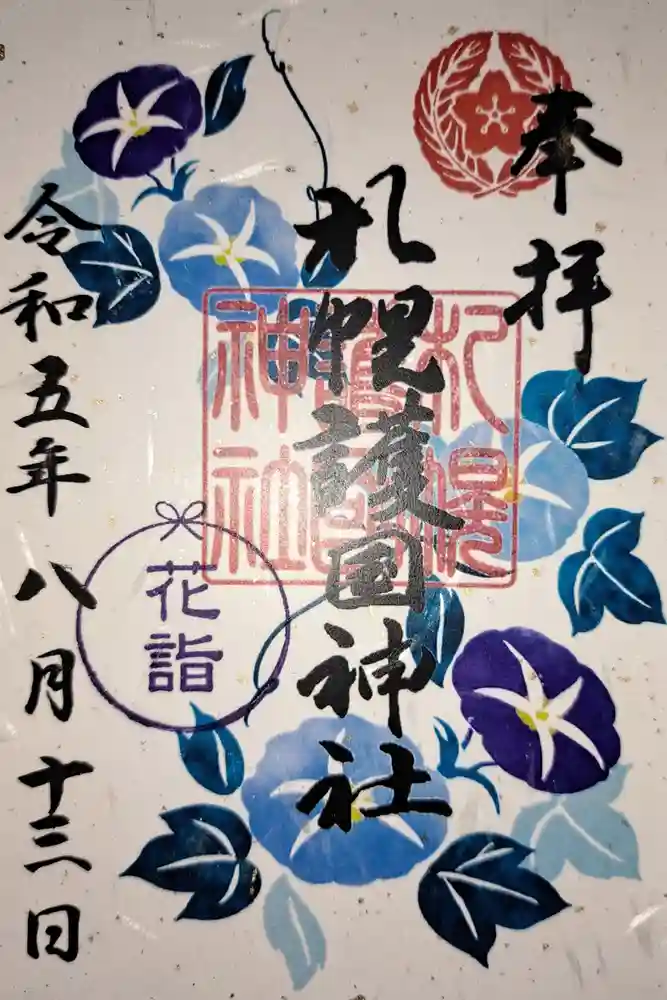 奉拝
札幌護国神社
札幌
護国
神社
花詣
令和五年八月十三日